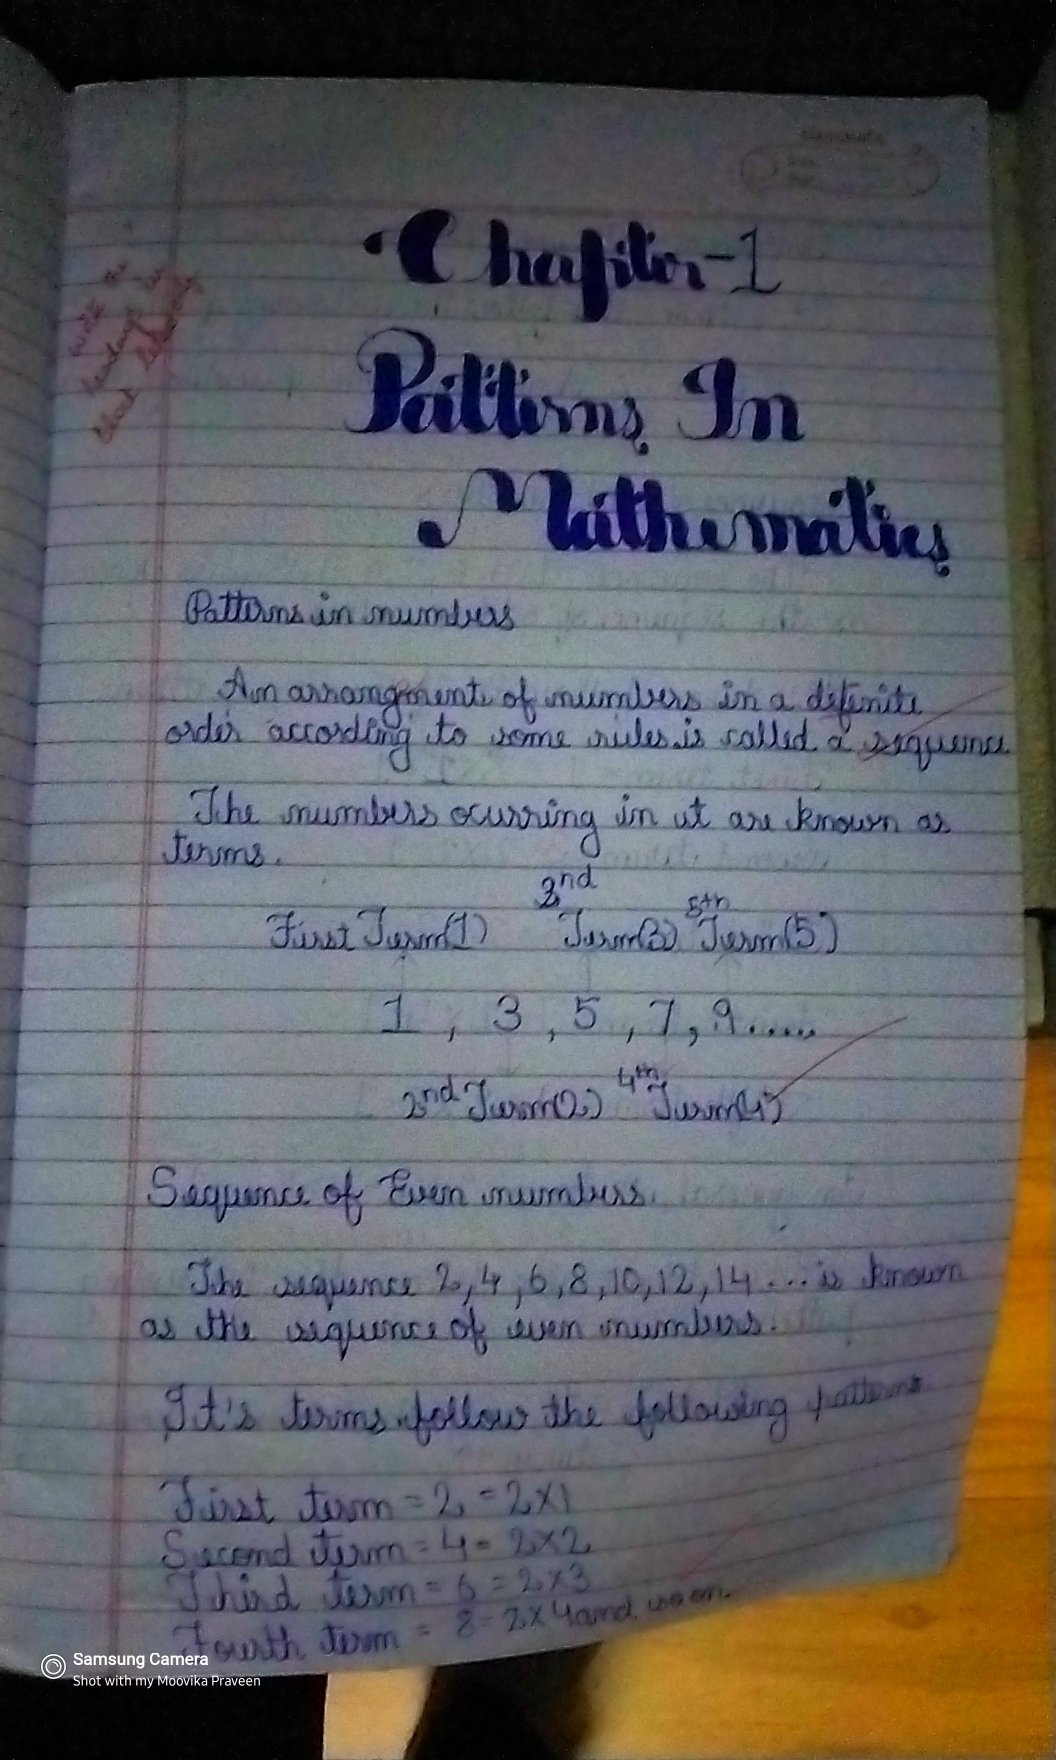 Chapter-1
Patterns In
Mathematics
Patterns in numbers
An arrangment of numbers in a definite
order according to some rules is called a sequence
The numbers ocurring in it are known as
terms.
First Term(1) 3nd Term(3) 5th Term(5)
1, 3, 5, 7, 9.....
2nd Term(2) 4th Term(4)
Sequence of Even numbers.
The sequence 2,4,6,8,10,12,14... is known
as the sequence of even numbers.
It's terms follow the following patterns
First term = 2 = 2×1
Second term = 4 = 2×2
Third term = 6 = 2×3
Fourth term = 8 = 2×4 and so on.
Samsung Camera
Shot with my Moovika Praveen